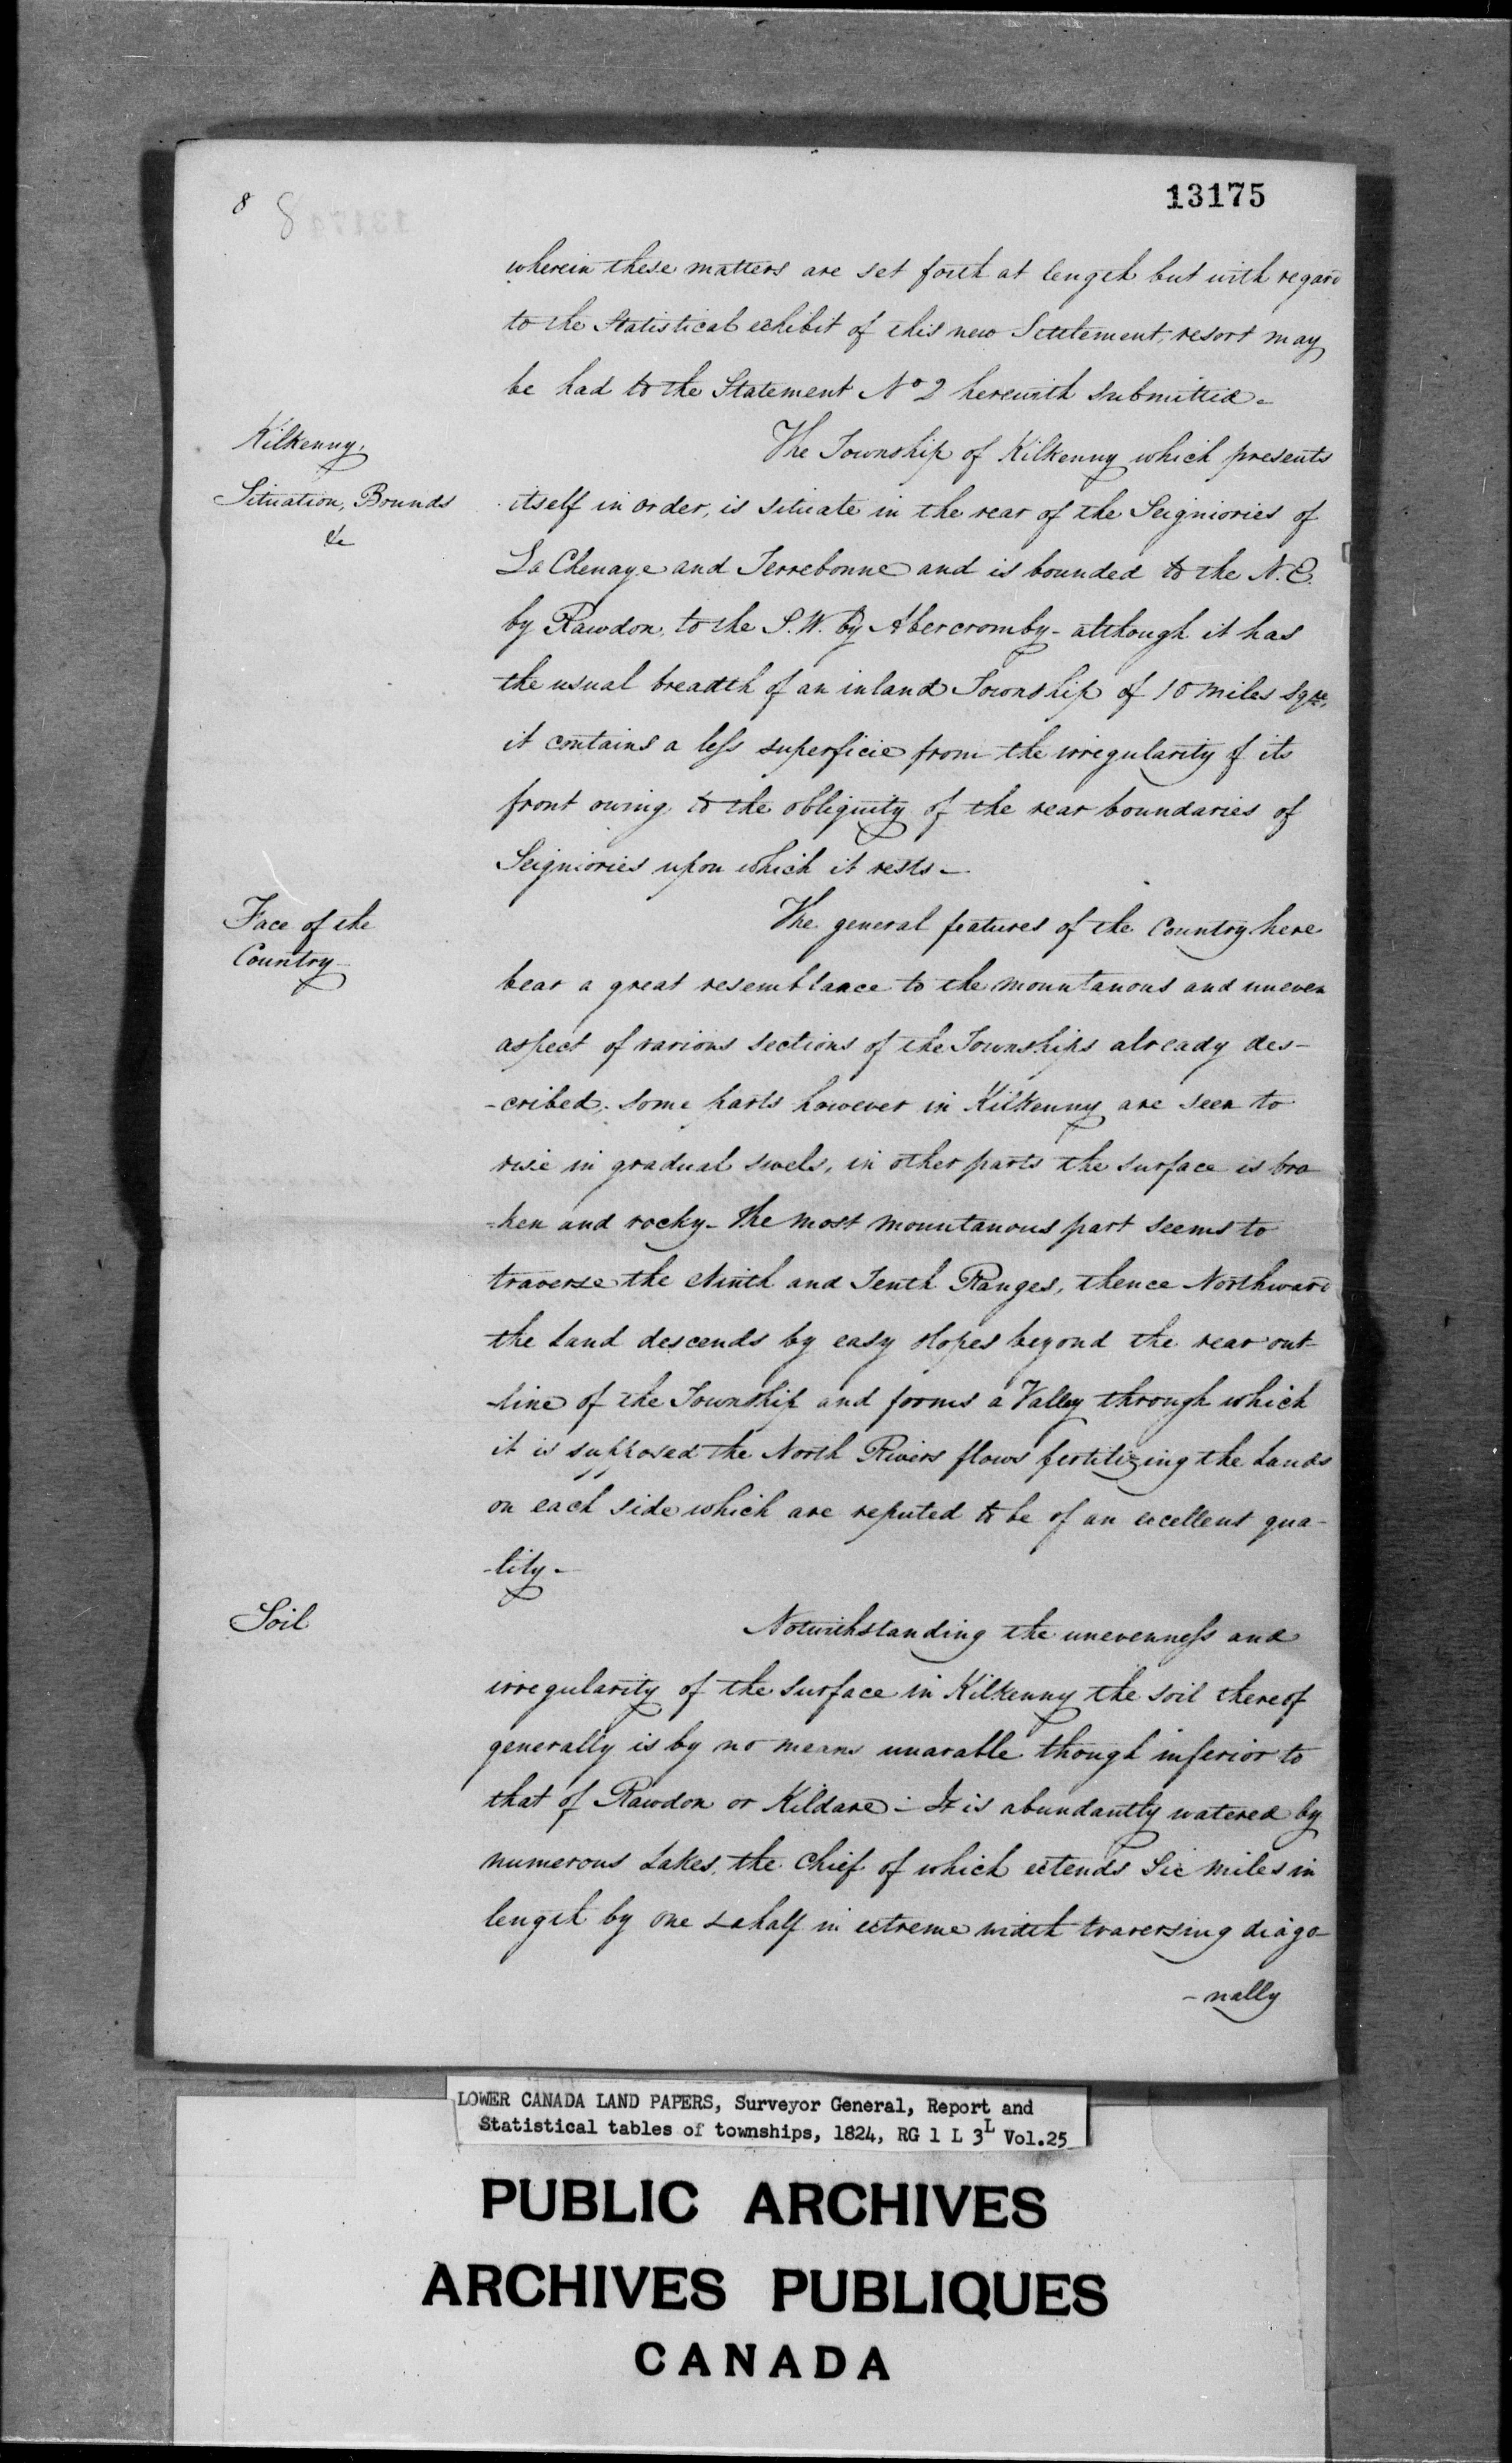 8 8
13175
wherein these matters are set forth at length but with regard
to the Statistical exhibit of this new Settlement, resort may
be had to the Statement No 2 herewith submitted.
Kilkenny,
Situation, Bounds
&c
The Township of Kilkenny which presents
itself in order, is situate in the rear of the Seigniories of
La Chenaye and Terrebonne and is bounded to the N.E.
by Rawdon, to the S.W. by Abercromby - although it has
the usual breadth of an inland Township of 10 miles sqre,
it contains a less superficie from the irregularity of its
front owing to the obliquity of the rear boundaries of
Seigniories upon which it rests -
Face of the
Country
The general features of the Country here
bear a great resemblance to the mountanous and uneven
aspect of various sections of the Townships already des-
-cribed, some parts however in Kilkenny are seen to
rise in gradual swels, in other parts the surface is bro
-ken and rocky - The most mountanous part seems to
traverse the Ninth and Tenth Ranges, thence Northward
the Land descends by easy slopes beyond the rear out-
-line of the Township and forms a Valley through which
it is supposed the North Rivers flows fertilizing the Lands
on each side which are reputed to be of an excellent qua-
-lity -
Soil
Notwithstanding the unevenness and
irregularity of the surface in Kilkenny the soil thereof
generally is by no means unarable though inferior to
that of Rawdon or Kildare - It is abundantly watered by
numerous Lakes, the Chief of which extends Six miles in
length by one & a half in extreme width traversing diago-
-nally
LOWER CANADA LAND PAPERS, Surveyor General, Report and
Statistical tables of townships, 1824, RG 1 L 3L Vol.25
PUBLIC ARCHIVES
ARCHIVES PUBLIQUES
CANADA